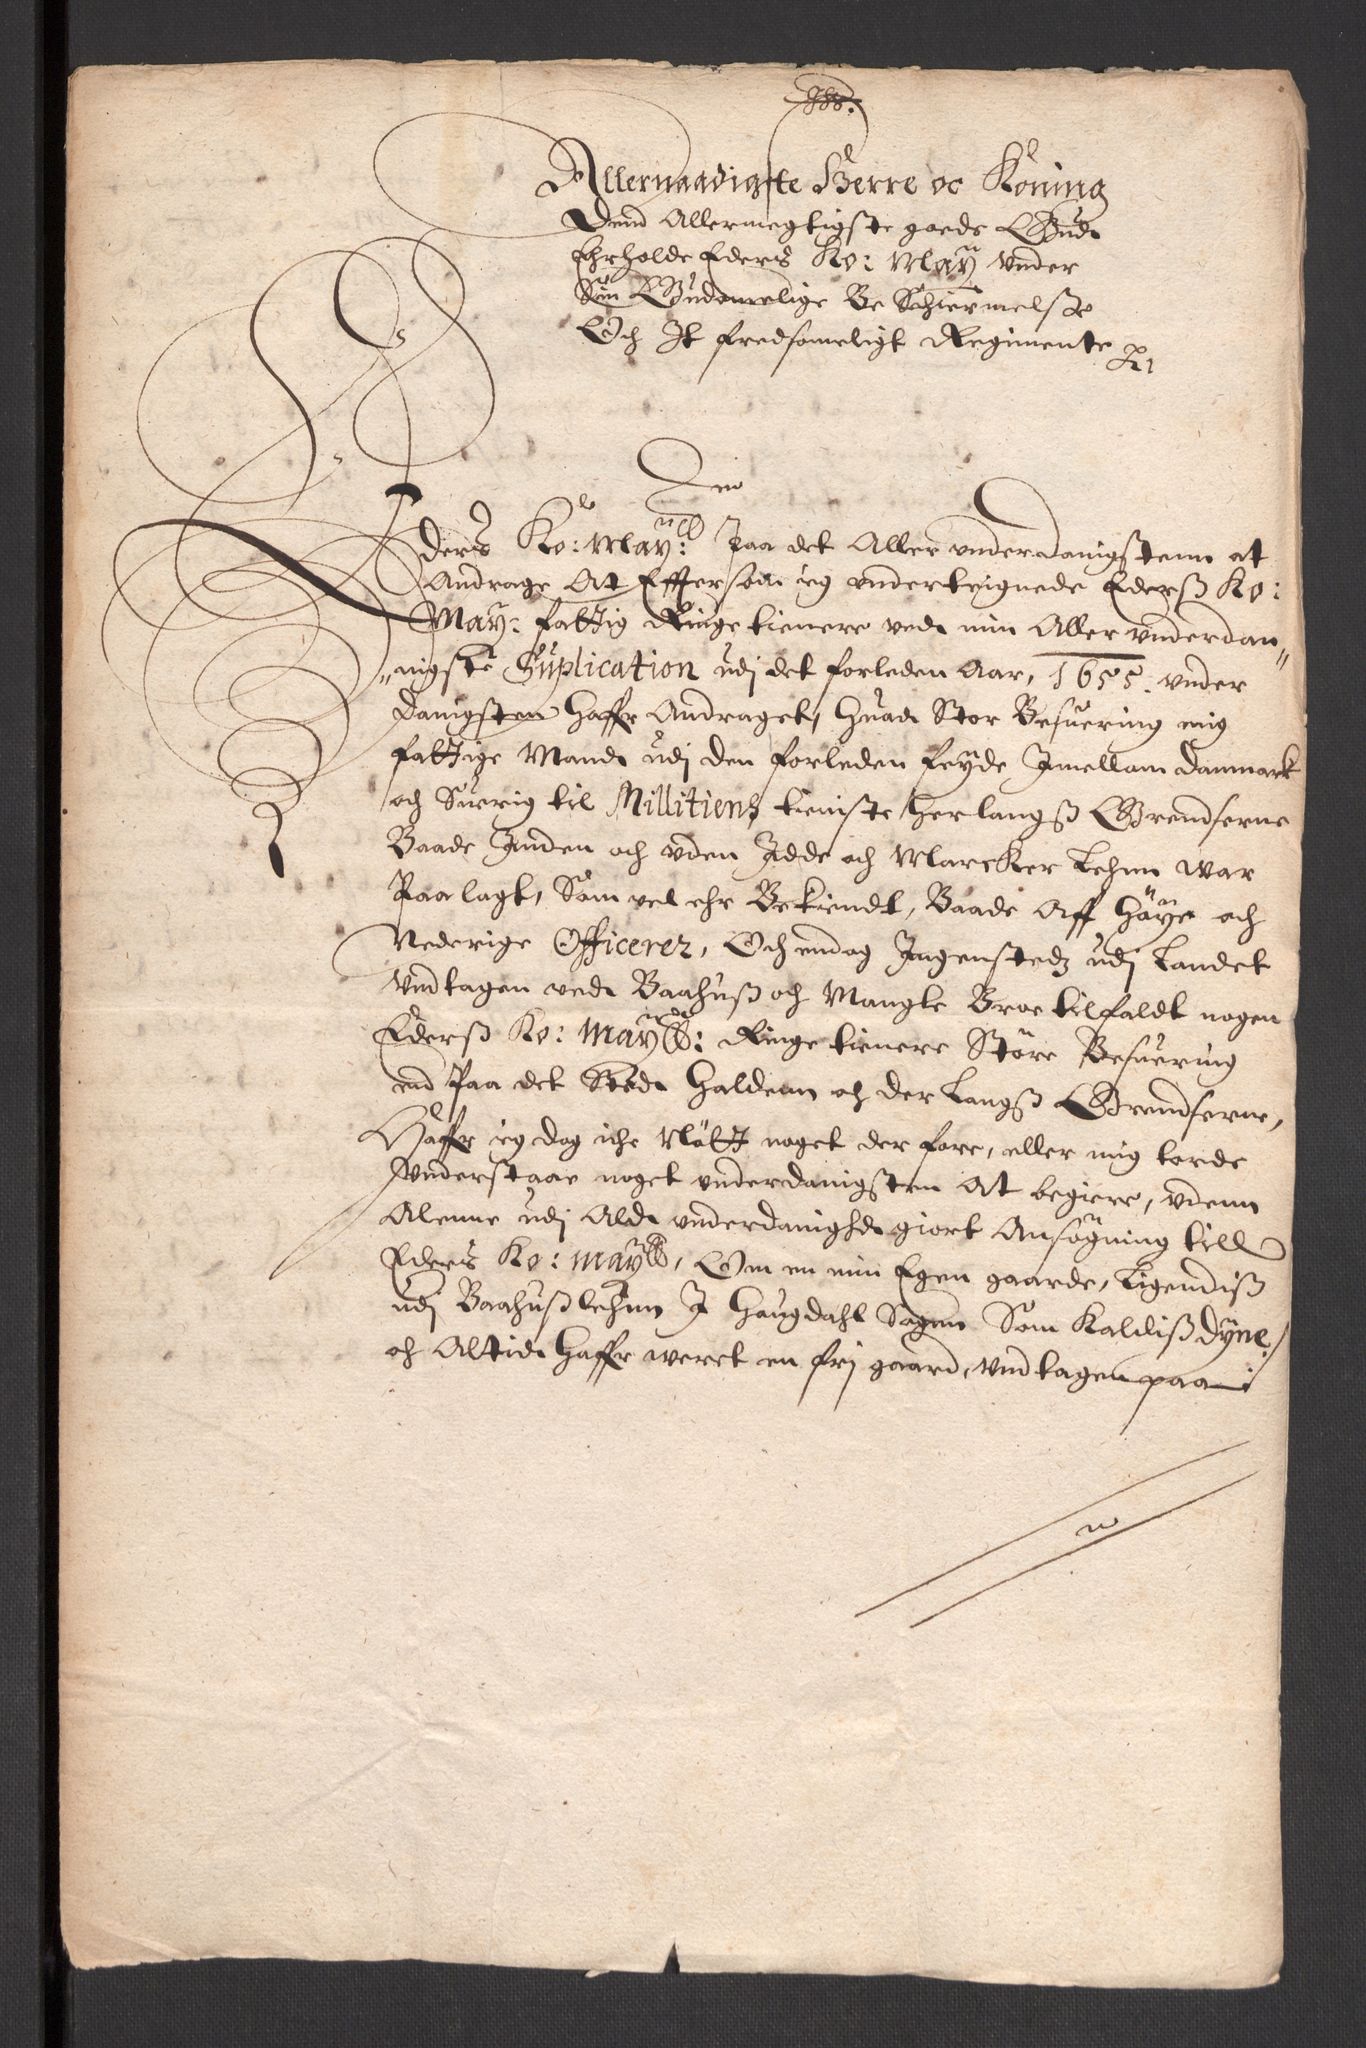 Allernaadigste Herre oc Koning
Dend Allermegtigste goede Gud
Ehrholde Eders Ko: May under
Sin Gudomelige Be Schiermelsse
Och It fredsomeligt Regimente
Eders Ko: Maytt: Paa det Aller underdanigstenn at
Andrage At Effttersom ieg underteignede Ederß Ko:
May: fattig Ringe tienere ved min Aller underdan„
„nigste Suplication udj det forleden Aar, 1655. under
Danigsten haffr Andraget, huad Stor Besuering mig
fattige Mand udj den forleden feyde Imellom Danmark
och Suerig til Millitiens tieniste herlangß Grendserne
Baade Inden och uden Idde och Marcker Lehnn war
Paa lagt, Som vel ehr Bekiendt, Baade Aff Höye och
Nederige Officerer, Och endog Ingensteds udj Landet
Undtagen ved Baahuß och Mangle Broe tilfaldt nogen
Ederß Ko: Maytß: Ringe tienere Störe Besuering
end Paa det Sted Haldenn och der Langß Grendserne,
Haffr ieg dog iche Nött noget der fore, eller mig torde
understaae noget underdanigsten At begiere, udenn
Alenne udj Ald underdanighed giort Ansögning till
Eders Ko: Maytt, Om en min Egen gaarde, Ligendiß
udj Baahußlehnn J Haugdahl Sogen Som Kaldiß Dyne,
och Altid haffr weret en frj gaard, undtagen paa